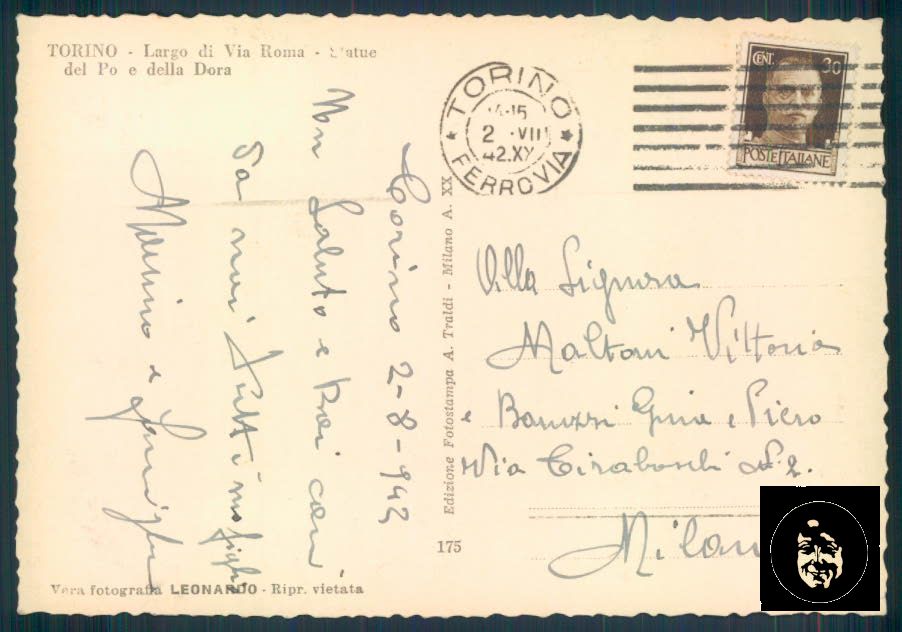 TORINO - Largo di Via Roma - Statue
del Po e della Dora
TORINO
2 VIII
42.XX
FERROVIA
CENT. 30
POSTE ITALIANE
Torino 2-8-942
Un Saluto e cari
da noi tutti
Edizione Fotostampa A. Traldi - Milano A. XX
Alla Signora
Maltoni Vittoria
e Baruzzi Gina e Piero
Via Tiraboschi N. 2.
Milano
175
Vera fotografia LEONARDO - Ripr. vietata